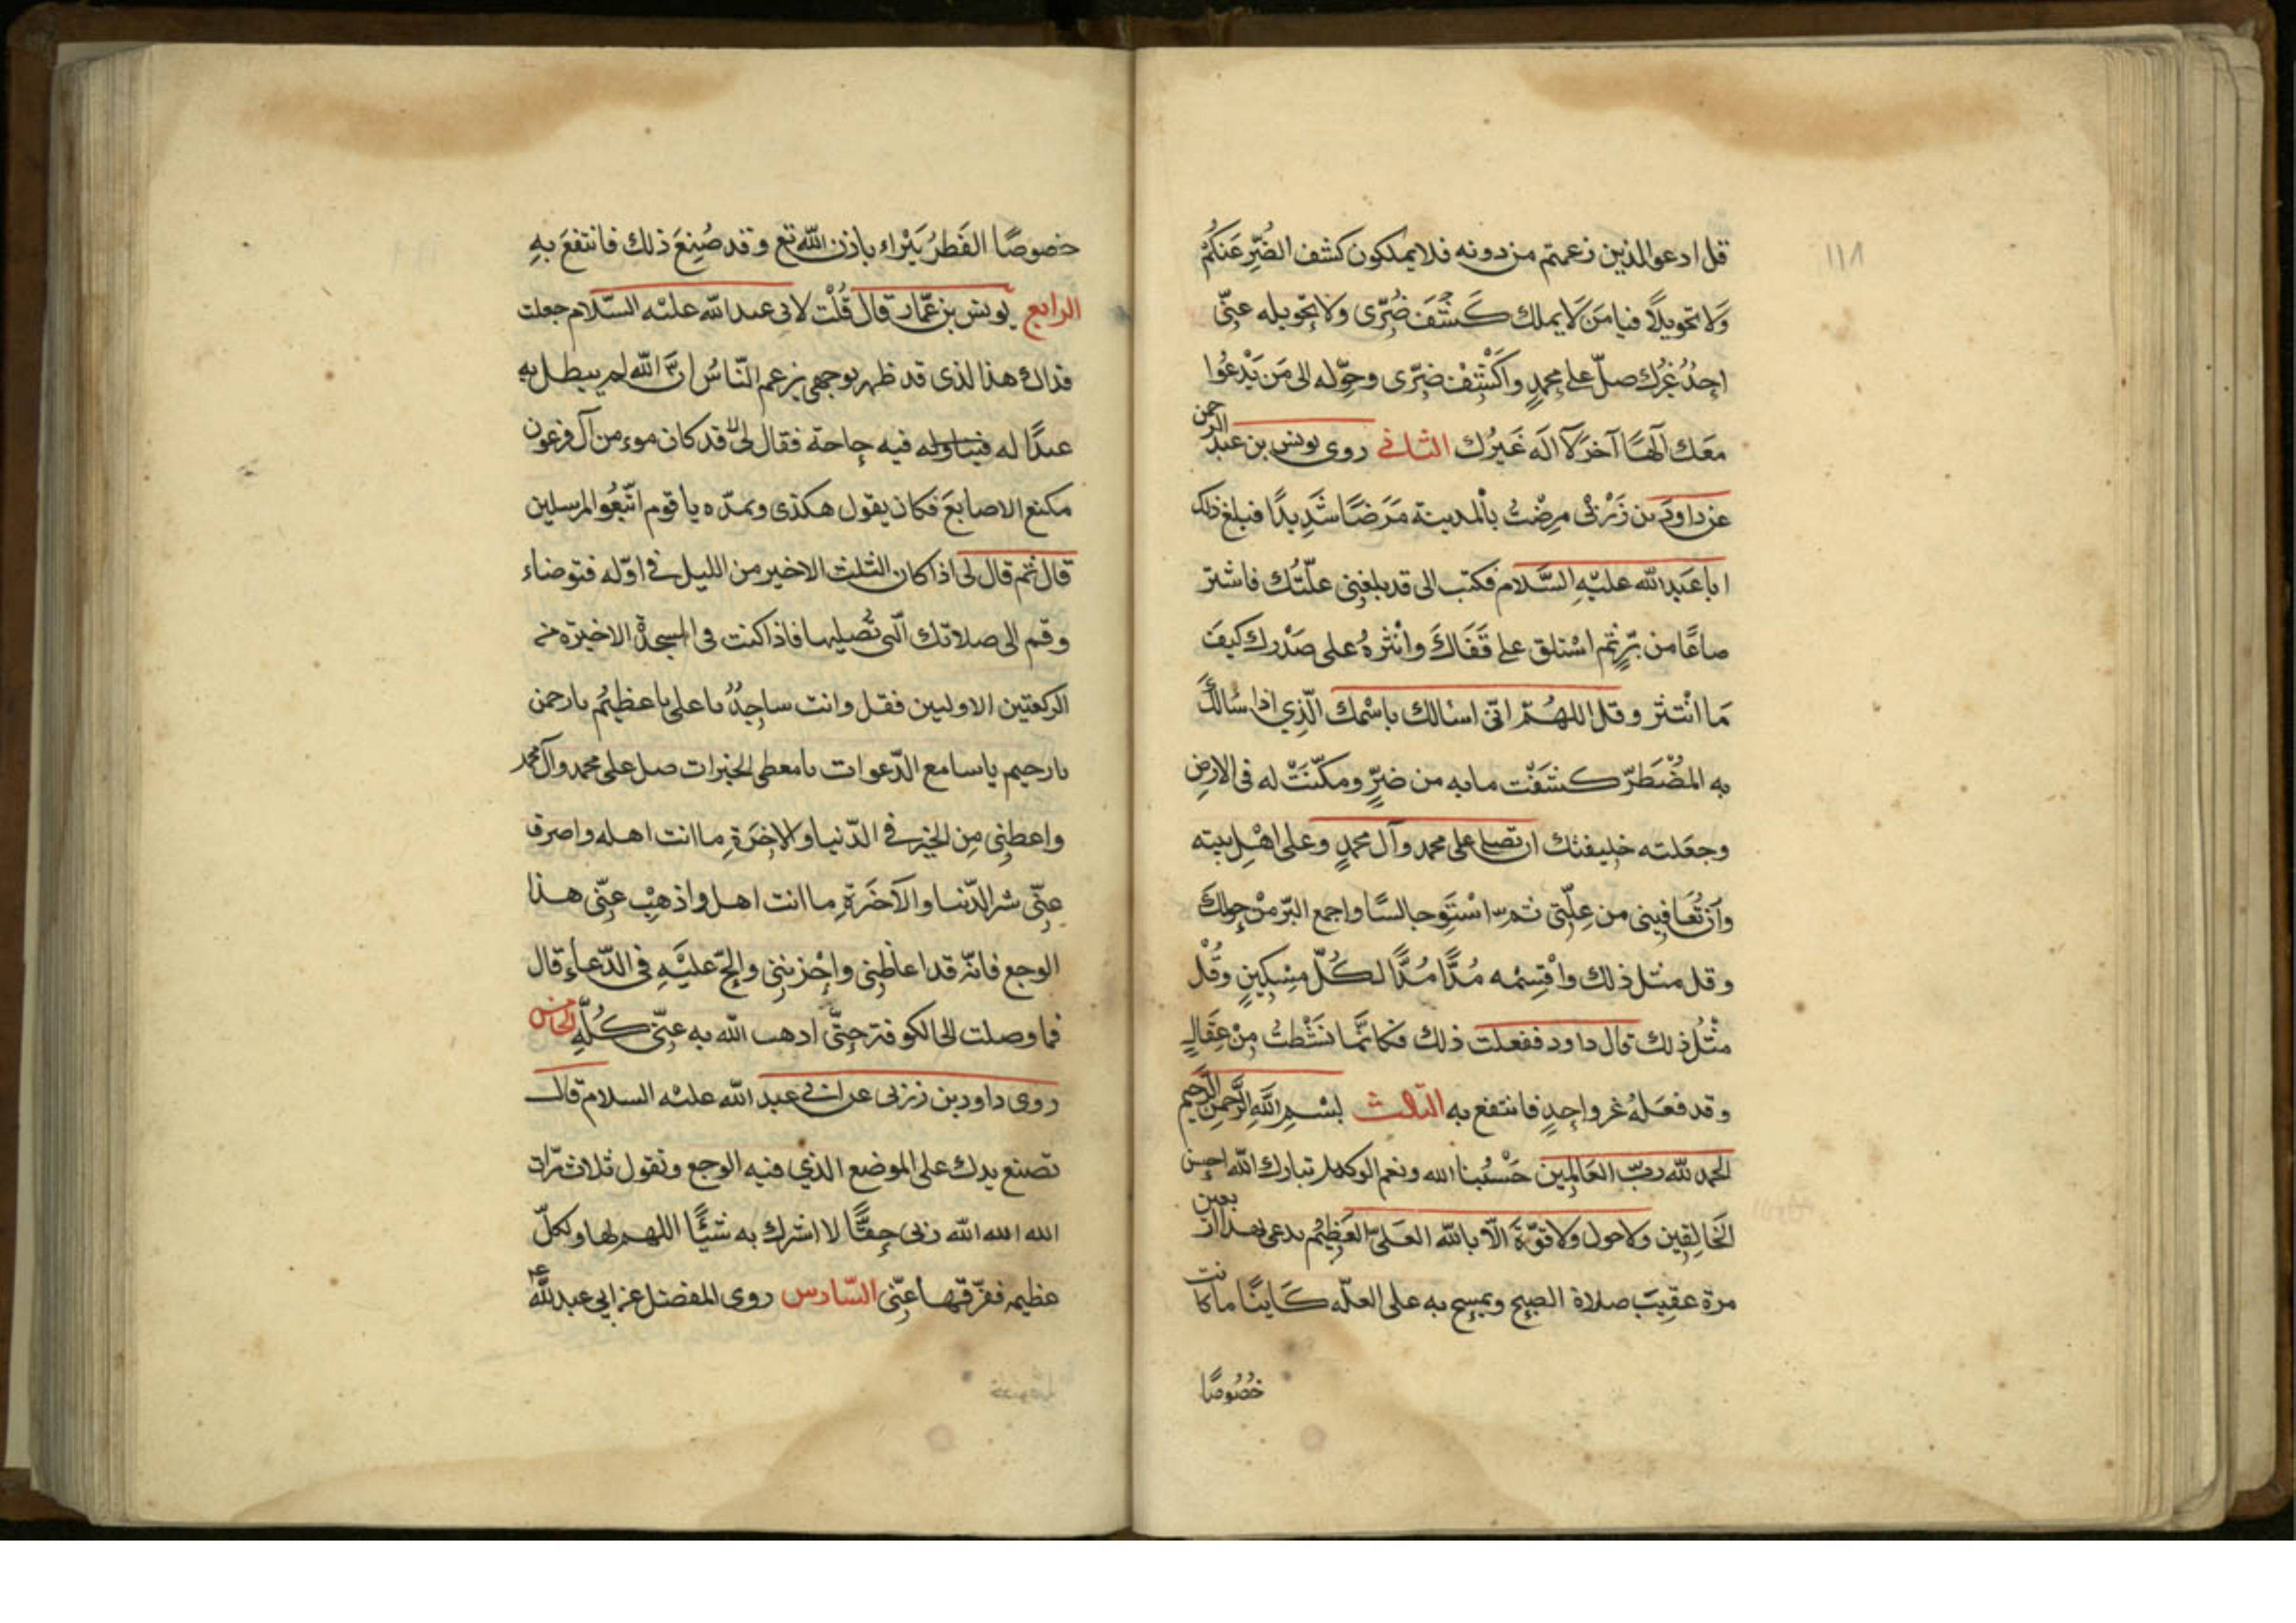 ١١٨
قل ادعوا الذين زعمتم من دونه فلا يملكون كشف الضُّرِّ عَنكُمْ
وَلا تحويلاً فيا مَن لَا يملك كَشْفَ ضُرّى ولا تحويله عنّى
احدٌ غيرُك صلّ على محمدٍ واكْشِفْ ضرّى وحوّله الى مَن يَدْعُوا
مَعَك آلهًا آخَر لَا الَه غَيرُك الثانى روى يونس بن عبد الرحمن
عن داود بن زَرْبى مرِضْتُ بالمدينة مَرَضًا شَدِيدًا فبلغ ذلك
ابا عَبدالله عليْهِ السَّلام فكتب الى قد بلغنِى علّتُك فاشتر
صاعًا من برٍّ ثم اسْتلق على قَفَاكَ وانْثرهُ على صَدْرك كيفَ
مَا انْتثر وقل اللهُمّ انّى اسالك باسْمك الّذِي اذا سَالَكَ
به المضْطَرّ كشَفْت ما به من ضرٍّ ومكّنَتْ له فى الارضِ
وجعَلته خليفتك ان تصلى على محمد وآل محمدٍ وعلى اهْلِ بيته
وَاَن تُعَافينى من عِلّتى ثم اسْتَوِ جالسًا واجمع البّر منْ حولكَ
وقل مثل ذلك واقْسِمْه مُدًّا مُدًّا لكُلّ مِسْكِينٍ وقُلْ
مثْلَ ذلك قال داود ففعلت ذلك فكانّما نَشَطْتُ مِنْ عِقَالٍ
وقد فعَلهُ غير واحدٍ فانتفع به الثالث بسْمِ اللَّهِ الرَّحمنِ الرَّحيم
الحمد للّه ربّ العَالمِين حَسْبُنا الله ونعم الوكيل تبارك اللّه احسن
الخَالِقِين ولا حول ولا قوّةَ الّا بالله العَلىّ العَظيْم يدعى بهذا اربعين
مرة عقيبَ صلاة الصبح ويمسح به على العلّه كَاينًا ما كانت
خصُوصًا
خصوصًا الفَطرُ يَبْراء باذن اللّه تع وقد صُنِعَ ذلك فانتفعَ بهِ
الرابع يونس بن عمّار قال قُلْت لابى عبد الله عليْه السّلام جعلت
فداك هذا الذى قد ظهر بوجهى يزعم النّاسُ انّ اللّه لم يبتل به
عبدًا له فيه حاجة فقال لى لا قد كان موءمن آل فرعون
مكنع الاصابعَ فكان يقول هكذى ويمدّ يده يا قوم اتّبعُوا المرسلين
قال ثم قال لى اذا كان الثلث الاخير من الليل فى اوّله فتوضاء
وقم الى صلاتك الّتى تُصليها فاذا كنت فى السجدة الاخيرة من
الركعتين الاوليين فقل وانت ساجِدٌ يا على يا عظيْم يا رحمن
يا رحيم يا سامع الدّعوات يا معطى الخيرات صل على محمد وآل محمد
واعطنِى مِن الخيْر فى الدّنيا والاخرَةِ ما انت اهله واصرف
عنّى شر الدّنيا والآخَرَةِ ما انت اهل واذهِبْ عنّى هذا
الوجع فانّه قد اغاظنِى واحْزننِى والحّ عليْه فى الدّعاء قال
فما وصلت الى الكوفة حتَّى اذهب اللّه به عنّى كُلَّهِ الخامس
روى داود بن زربى عن ابى عبد الله عليْه السلام قال
تصنع يدك على الموضع الذي فيه الوجع وتقول ثلاث مرّات
الله الله اللّه ربى حقًّا لا اشرك به شيْئًا اللهم لها ولكلّ
عظيمه ففرّقها عنّى السّادس روى المفضل عن ابي عبد اللّه ع